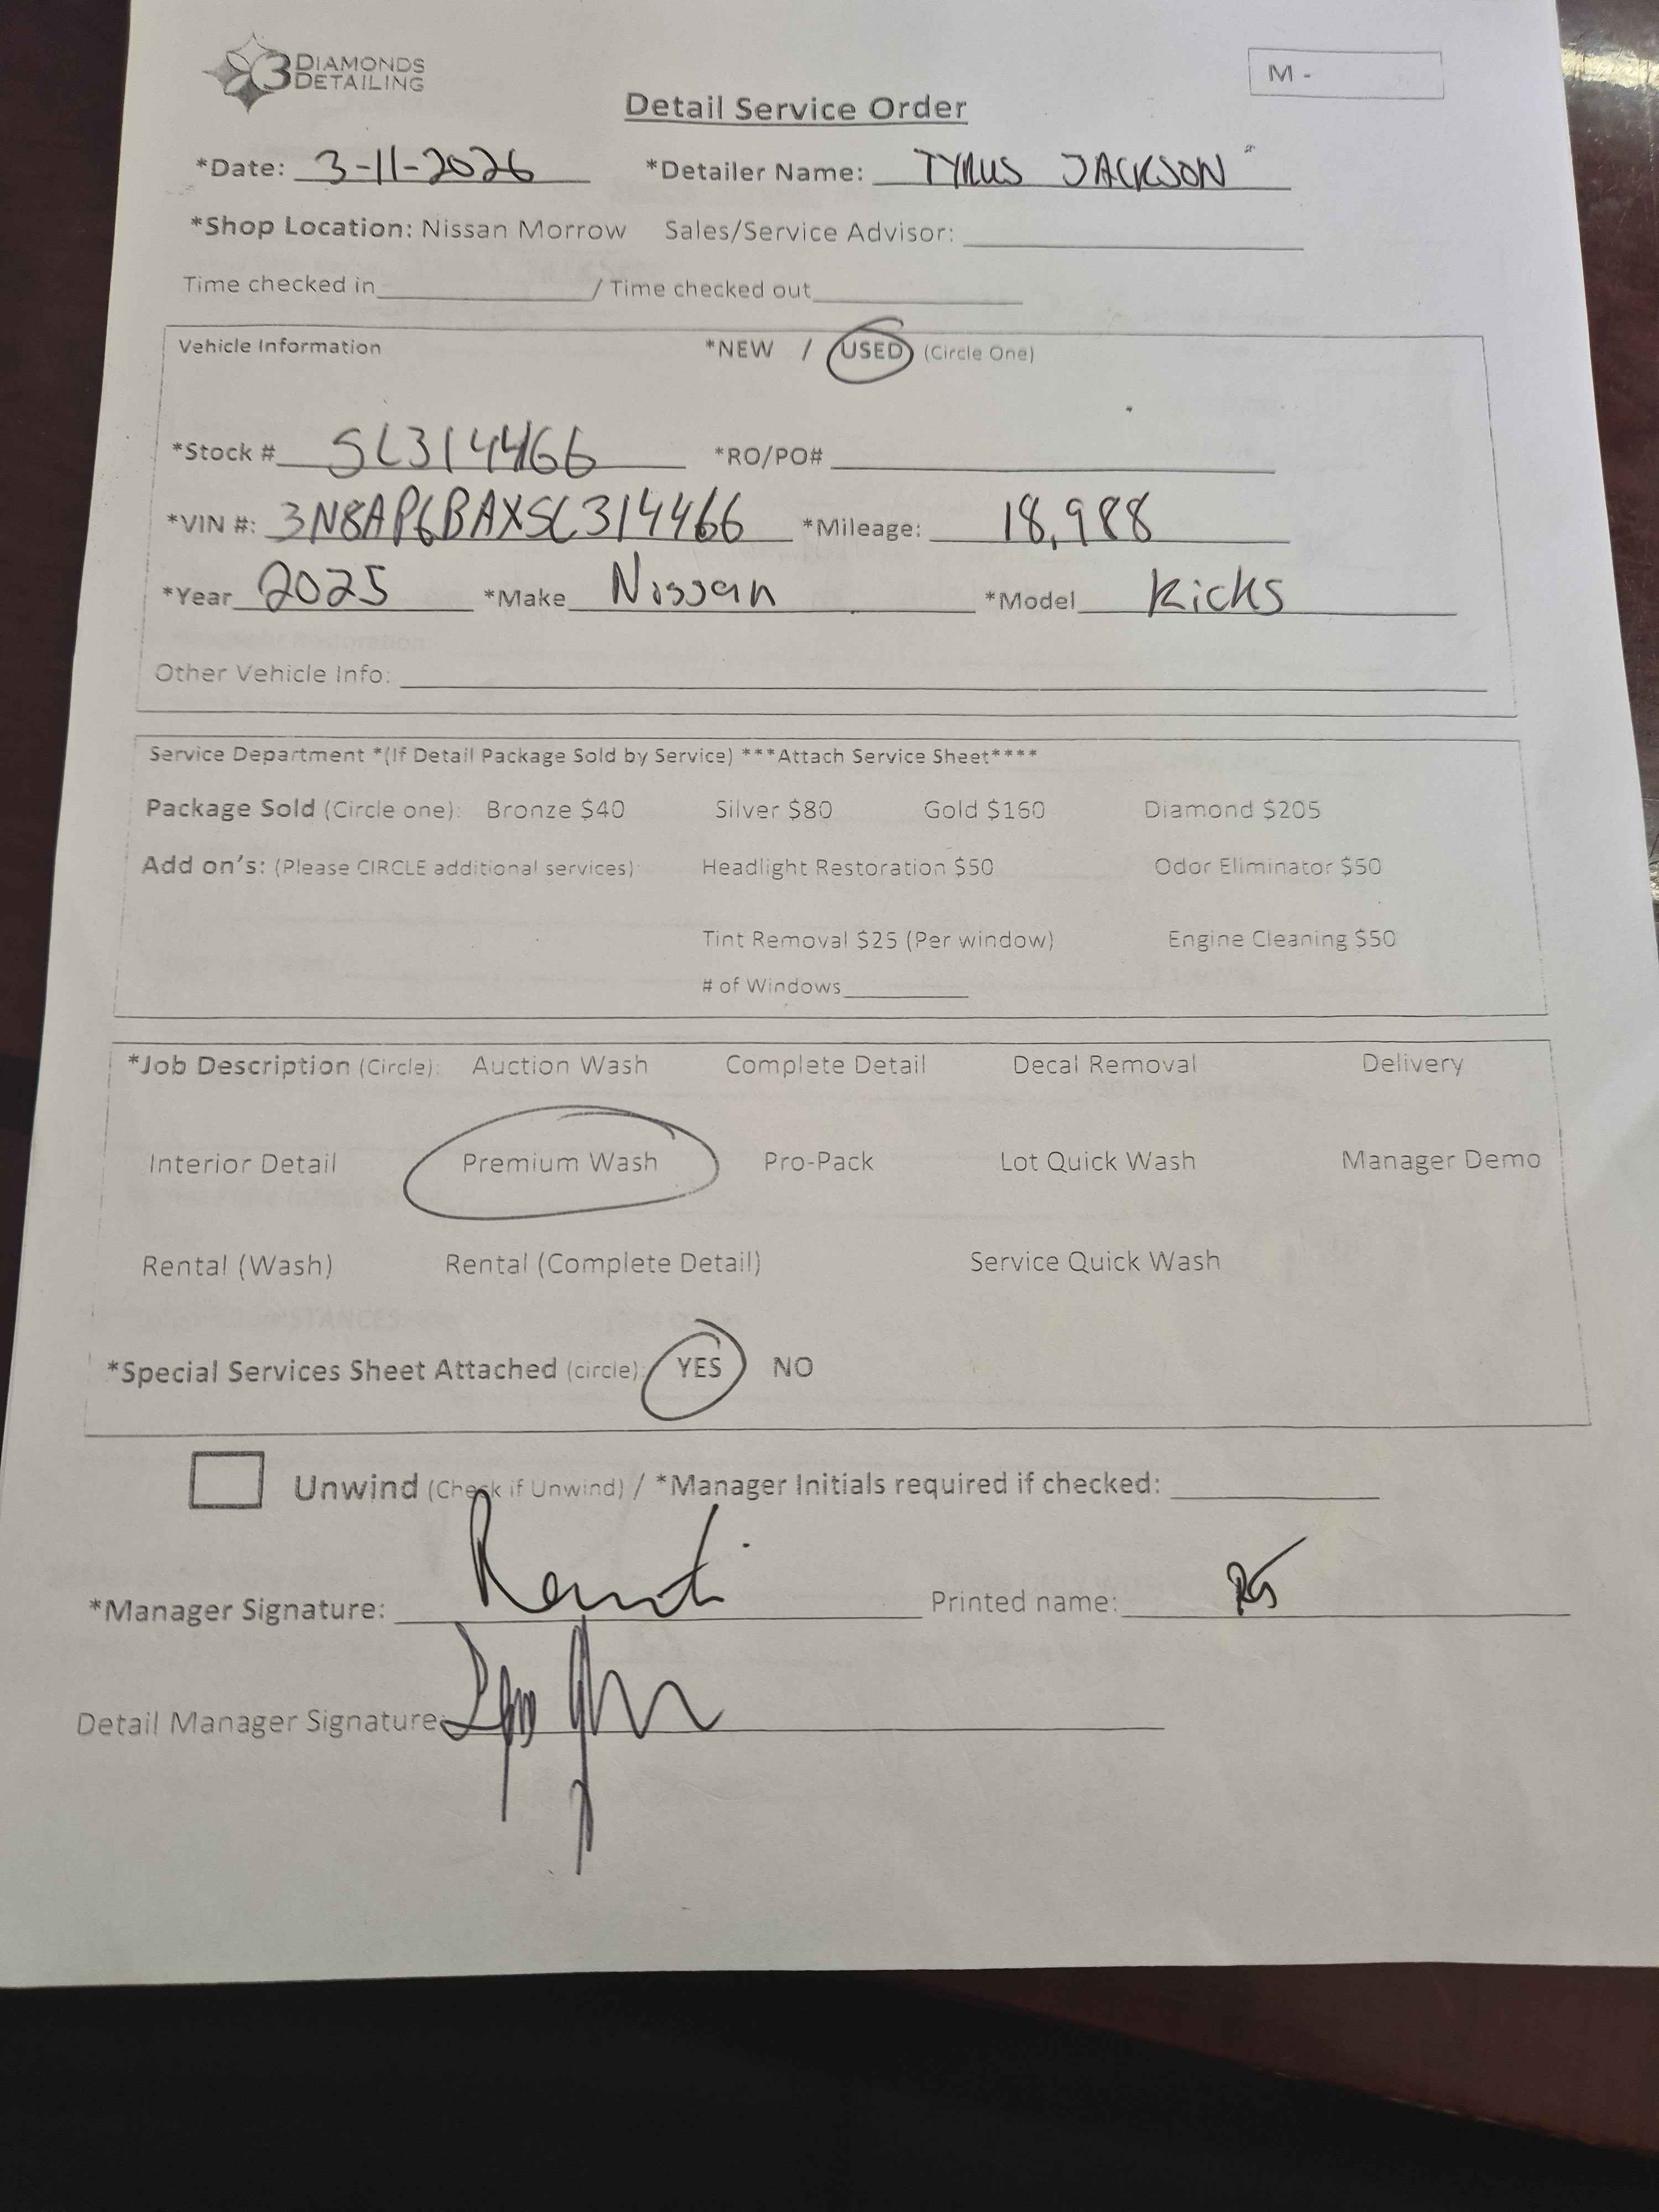 3 DIAMONDS DETAILING
M -
Detail Service Order
*Date: 3-11-2026 *Detailer Name: TYRUS JACKSON
*Shop Location: Nissan Morrow Sales/Service Advisor:
Time checked in / Time checked out
Vehicle Information *NEW / USED (Circle One)
*Stock # SL314466 *RO/PO#
*VIN #: 3N8AP6BAXSL314466 *Mileage: 18,988
*Year 2025 *Make Nissan *Model Kicks
Other Vehicle Info:
Service Department *(If Detail Package Sold by Service) ***Attach Service Sheet****
Package Sold (Circle one): Bronze $40 Silver $80 Gold $160 Diamond $205
Add on's: (Please CIRCLE additional services): Headlight Restoration $50 Odor Eliminator $50
Tint Removal $25 (Per window) Engine Cleaning $50
# of Windows
*Job Description (Circle): Auction Wash Complete Detail Decal Removal Delivery
Interior Detail Premium Wash Pro-Pack Lot Quick Wash Manager Demo
Rental (Wash) Rental (Complete Detail) Service Quick Wash
*Special Services Sheet Attached (circle): YES NO
Unwind (Check if Unwind) / *Manager Initials required if checked:
*Manager Signature: Printed name:
Detail Manager Signature: